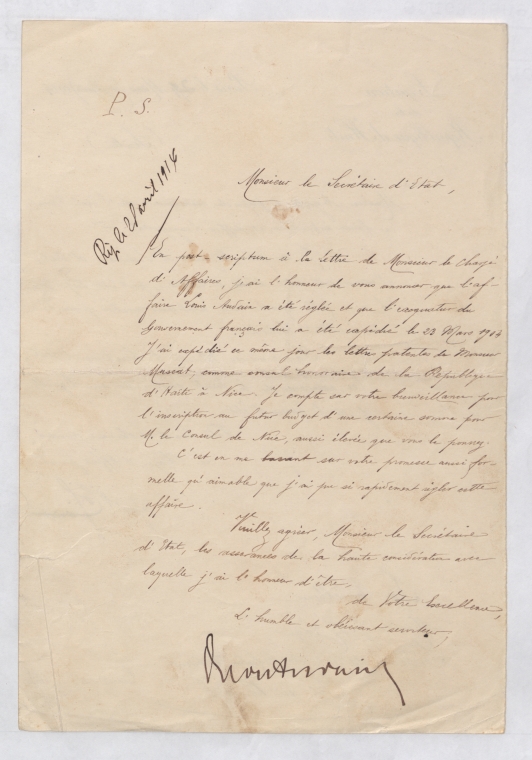 P. S.
Rép. le 21 avril 1914
Monsieur le Secrétaire d'Etat,
En post-scriptum à la lettre de Monsieur le Chargé
d'Affaires, j'ai l'honneur de vous annoncer que l'af-
faire Louis Audain a été réglée et que l'exequatur du
Gouvernement français lui a été expédié le 23 Mars 1914
J'ai expédié ce même jour les lettres patentes de Monsieur
comme consul honoraire de la République
d'Haïti à Nice. Je compte sur votre bienveillance pour
l'inscription au futur budget d'une certaine somme pour
M. le Consul de Nice, aussi élevée que vous le pourrez.
C'est en me basant sur votre promesse aussi for-
melle qu'aimable que j'ai pu si rapidement régler cette
affaire.
Veuillez agréer, Monsieur le Secrétaire
d'Etat, les assurances de la haute considération avec
laquelle j'ai l'honneur d'être,
de Votre Excellence,
L'humble et obéissant serviteur,